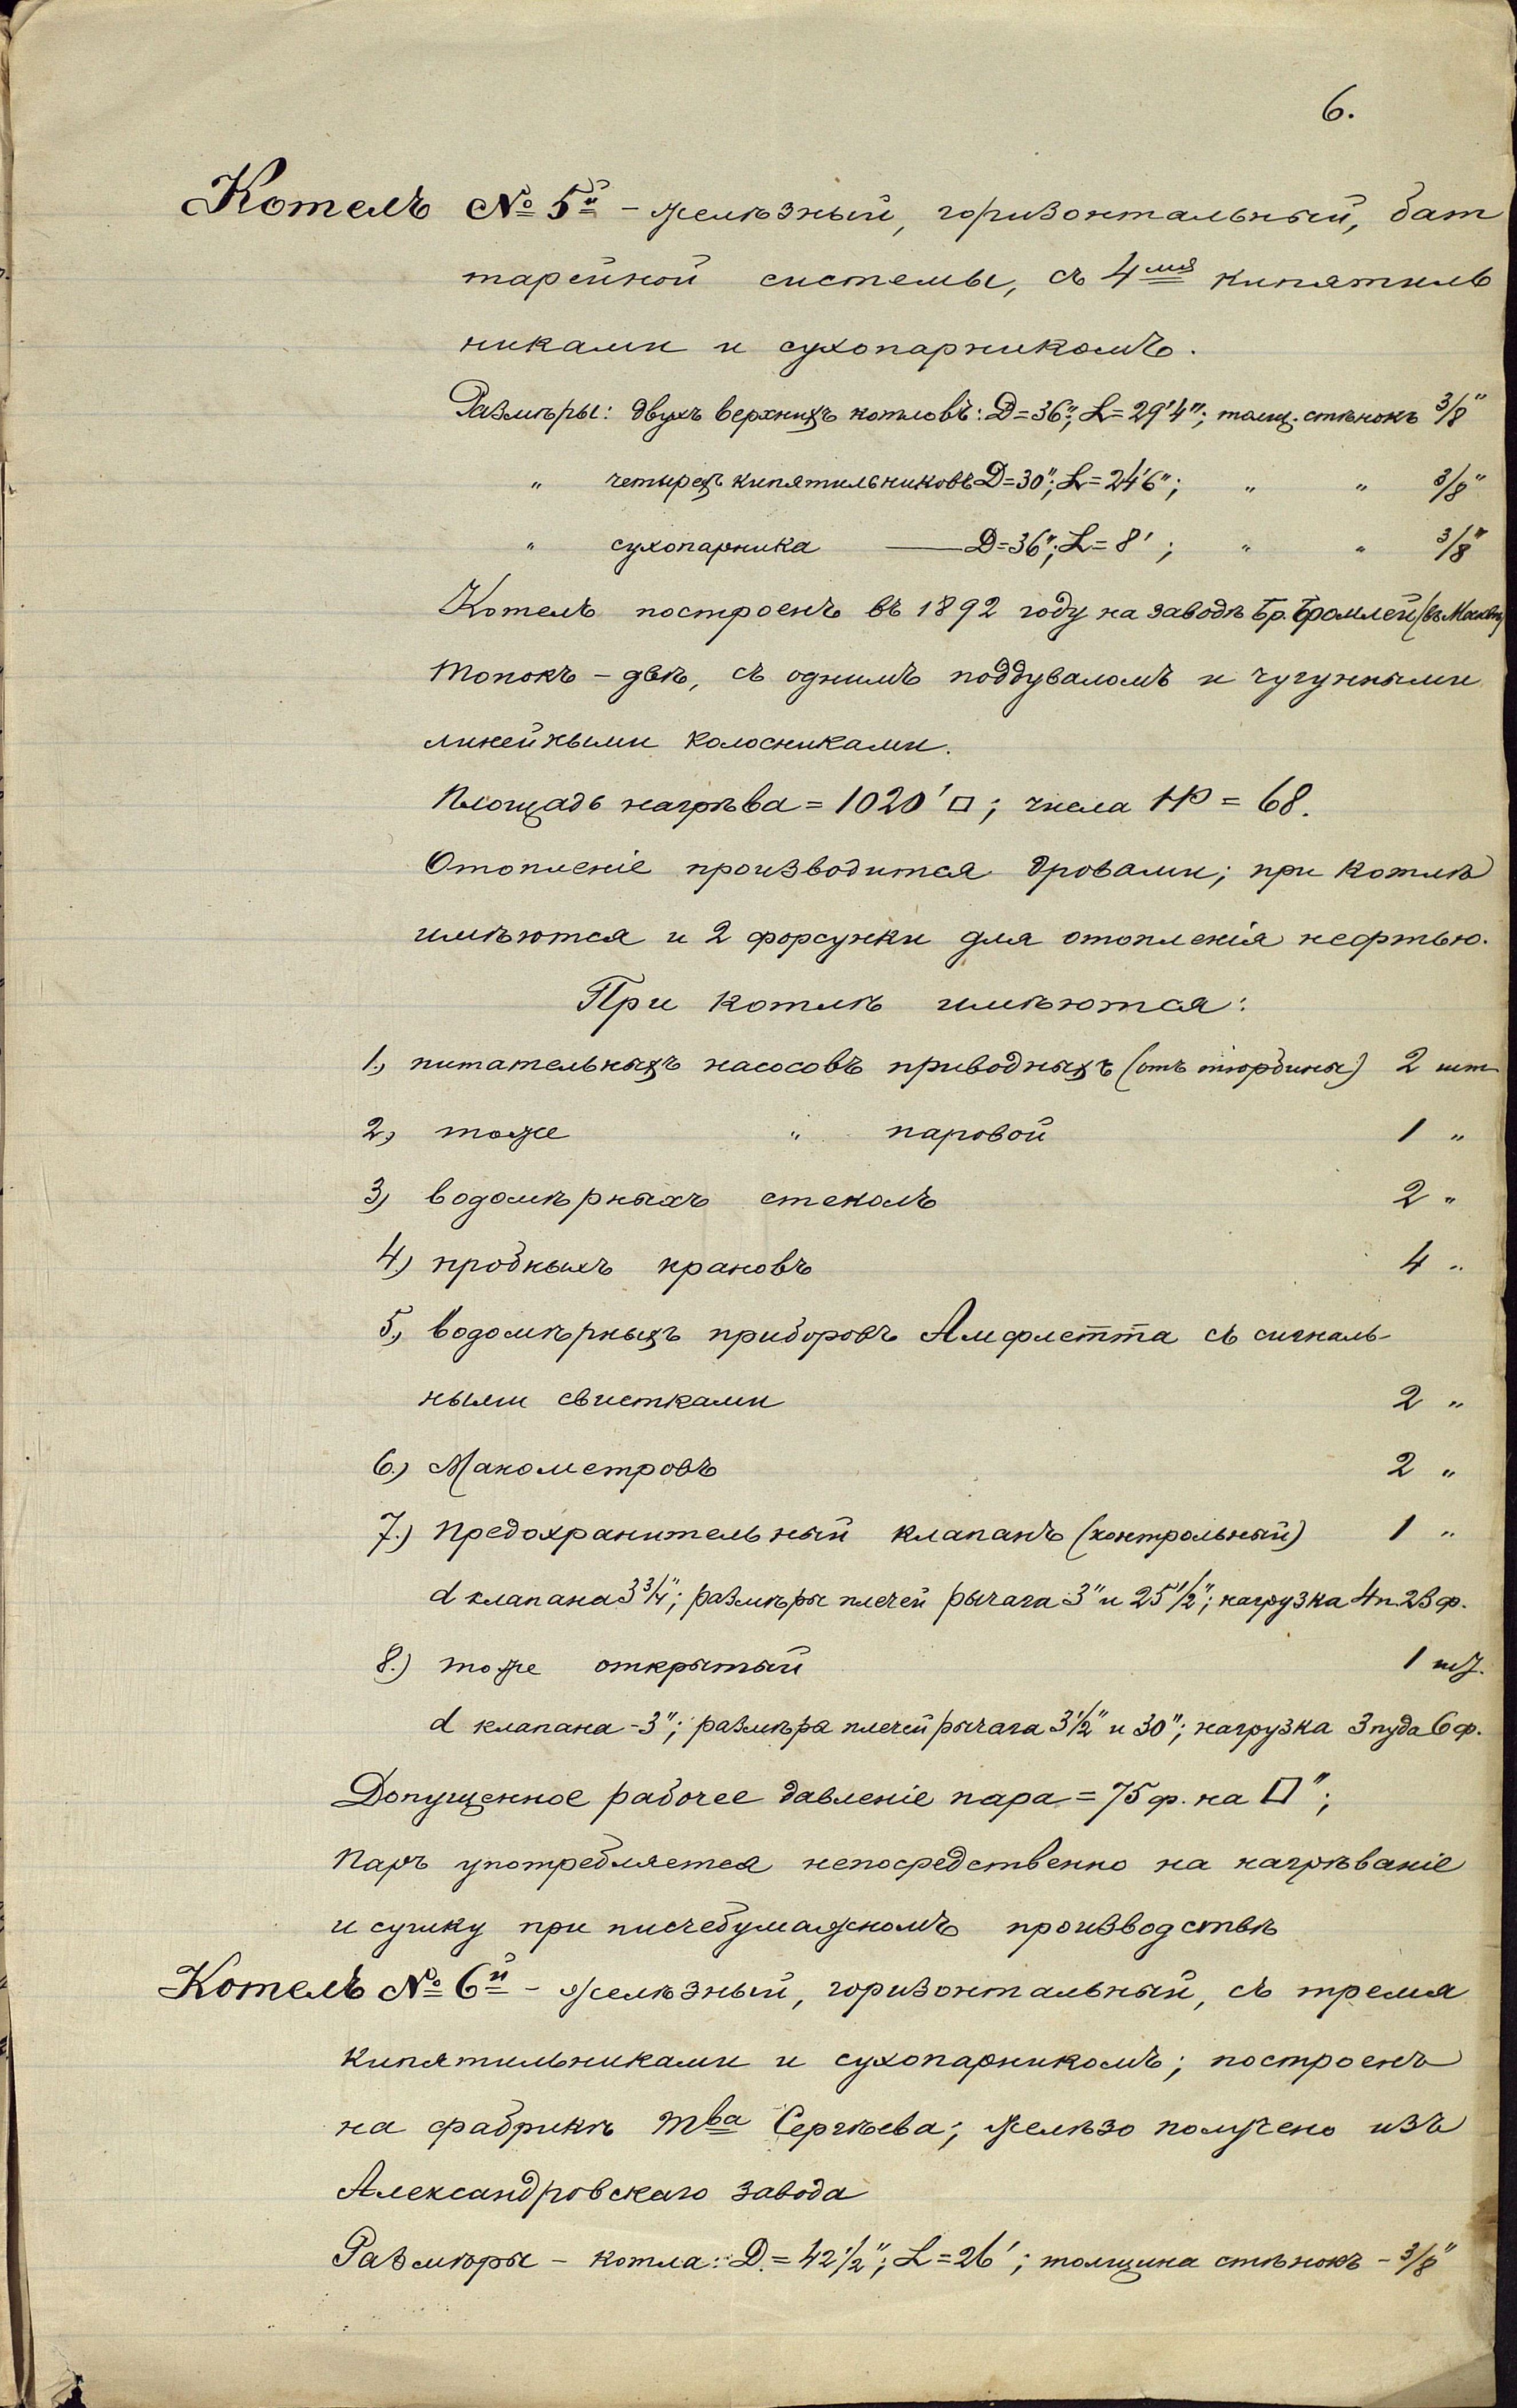 6.
Котелъ № 5й – желѣзный, горизонтальный, бат
тарейной системы, съ 4мя кипятиль
никами и сухопарникомъ.
Размѣры: двухъ верхнихъ котловъ: D=36"; L=29'4"; толщ. стѣнокъ 3/8"
" четырехъ кипятильниковъ D=30"; L=24'6"; " " 3/8"
" сухопарника — D=36"; L=8'; " " 3/8"
Котелъ построенъ въ 1892 году на заводѣ Бр. Бромлей (въ Москвѣ)
Топокъ – двѣ, съ однимъ поддуваломъ и чугунными
линейными колосниками.
Площадь нагрѣва = 1020'□; числа HP = 68.
Отопленіе производится дровами; при котлѣ
имѣются и 2 форсунки для отопленія нефтью.
При котлѣ имѣются:
1.) питательныхъ насосовъ приводныхъ (отъ тюрбины) 2 шт
2.) тоже " паровой 1 "
3) водомѣрныхъ стеколъ 2 "
4.) пробныхъ крановъ 4 "
5.) водомѣрныхъ приборовъ Амфлетта съ сигналь-
ными свистками 2 "
6.) Манометровъ 2 "
7.) Предохранительный клапанъ (контрольный) 1 "
d клапана 3 3/4"; размѣры плечей рычага 3" и 25 1/2"; нагрузка 4 п. 23 ф.
8.) тоже открытый 1 шт.
d клапана – 3"; размѣра плечей рычага 3 1/2" и 30"; нагрузка 3 пуда 6 ф.
Допущенное рабочее давленіе пара = 75 ф. на □";
Паръ употребляется непосредственно на нагрѣваніе
и сушку при писчебумажномъ производствѣ
Котелъ № 6й – желѣзный, горизонтальный, съ тремя
кипятильниками и сухопарникомъ; построенъ
на фабрикѣ Тва Сергѣева; желѣзо получено изъ
Александровскаго завода
Размѣры – котла: D.=42 1/2"; L=26'; толщина стѣнокъ – 3/8"